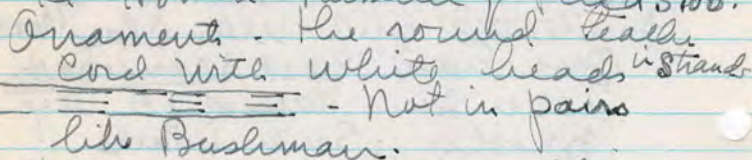 Onaments - the round
Cord with white beads in strands
- Not in pairs
like Bushman.